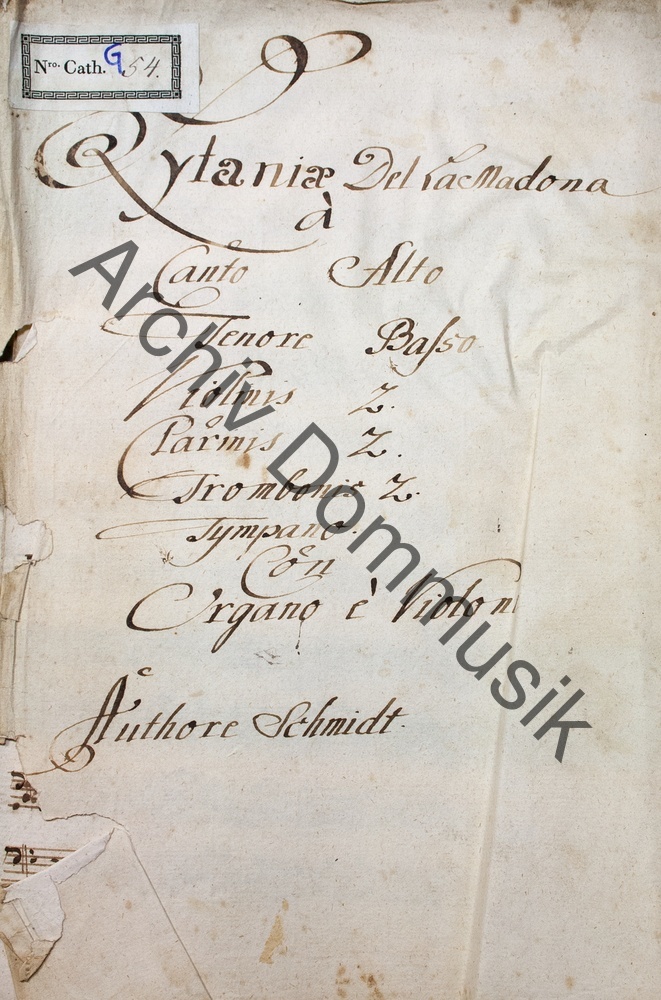 Nro. Cath. G 54.
Lytaniæ Del La Madona
à
Canto Alto
Tenore Basso
Violinis 2.
Clarinis 2.
Trombonis 2.
Tympano.
Con
Organo è Violon
Authore Schmidt.
Archiv Dommusik